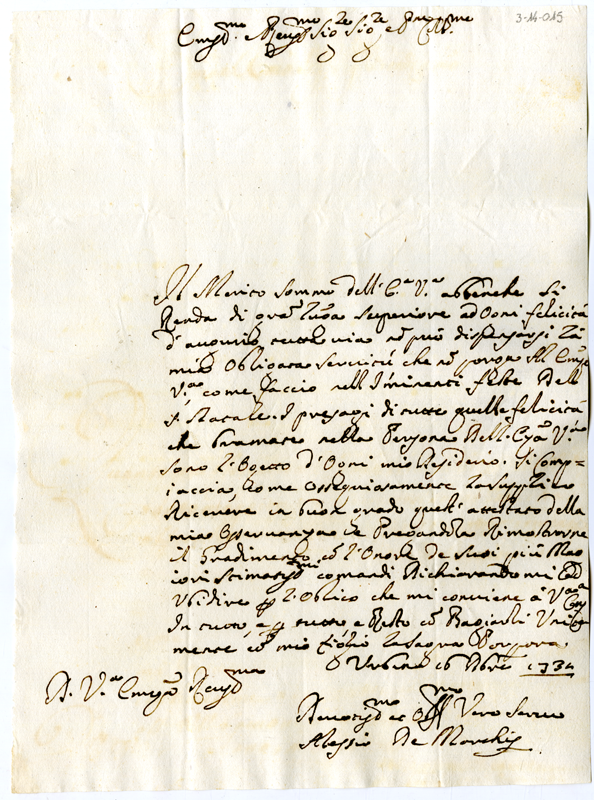 3-14-015
Il Merito sommo dell' E.a V.a abbenche si
Renda di gran lunga superiore ad Ogni felicità
d'augurio tutta via nō può dispensarsi la
mia Obligata servitù che nō porga All' Em.a
V.a come faccio nell' Iminenti feste Dell
S. Natale. I presagi di tutte quelle felicità
che bramate nella Persona Dell' V.a
sono l'Ogetto d'Ogni mio Desiderio. Si comp=
iaccia, Come Ossequiosamente La Supplico
Ricevere in buon grado questi attestato della
mia Osservanza e Pregandola Rimostrarne
il Gradimento cō l'Onore de suoi più Mag
iori Stimatis.mi comandi Dichiarandomi Ad
Ubidire l'Obligo che mi conviene à V.a
In tutto, e tutto e Resto cō Baciarli Umil
mente cō mio figlio La Sagra Porpora
Urbino 16 1734
D. V.a Em.a Rev.ma
Devotis.mo et Obl.mo Vero Servo
Alessio De Marchis